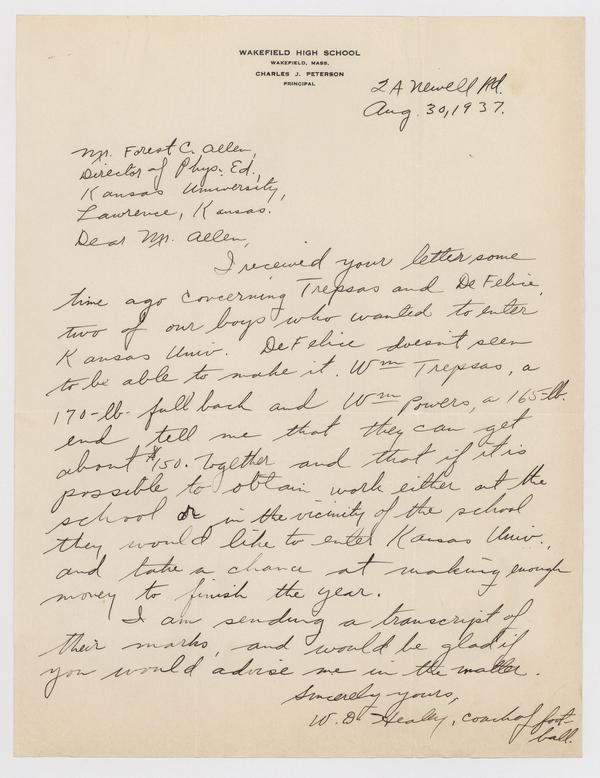 WAKEFIELD HIGH SCHOOL
WAKEFIELD, MASS.
CHARLES J. PETERSON
PRINCIPAL
2A Newell Rd.
Aug. 30, 1937.
Mr. Forest C. Allen,
Director of Phys. Ed.,
Kansas University,
Lawrence, Kansas.
Dear Mr. Allen,
I received your letter some
time ago concerning Trepsas and DeFelice,
two of our boys who wanted to enter
Kansas Univ. DeFelice doesn't seem
to be able to make it. Wm Trepsas, a
170-lb. fullback and Wm Powers, a 165-lb.
end, tell me that they can get
about $150. together and that if it is
possible to obtain work either at the
school or in the vicinity of the school
they would like to enter Kansas Univ.,
and take a chance at making enough
money to finish the year.
I am sending a transcript of
their marks, and would be glad if
you would advise me in the matter.
Sincerely yours,
W. D. Healey, coach of foot-
ball.